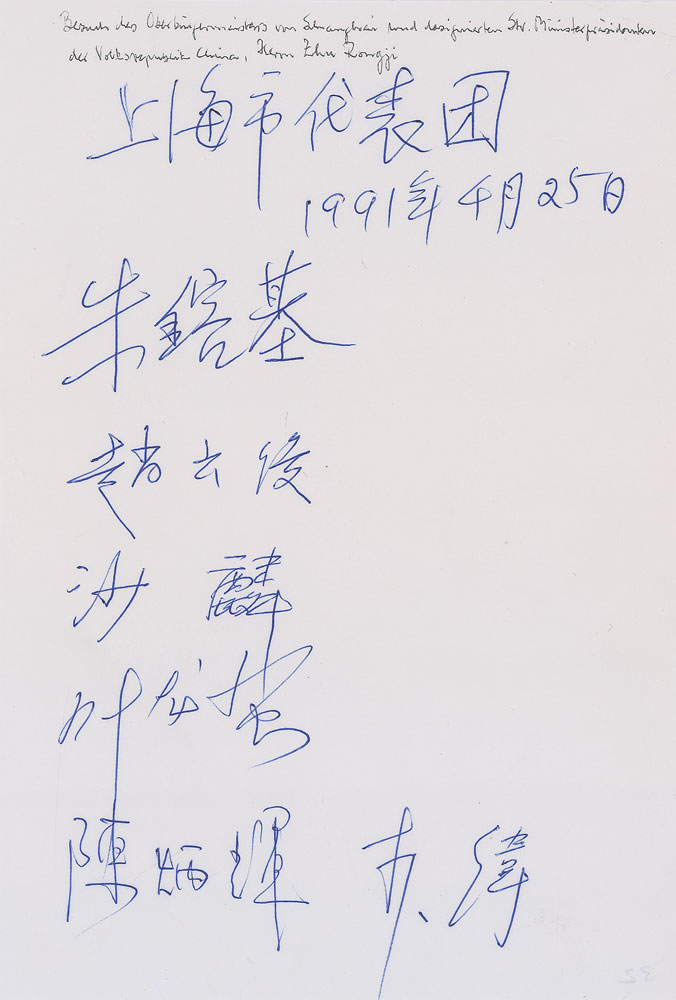 Besuch des Oberbürgermeisters von Schanghai und designierten Str. Ministerpräsidenten
der Volksrepublik China, Herrn Zhu Rongji
上海市代表团
1991年4月25日
朱鎔基
趙云俊
沙麟
叶龙蜚
陳炳輝